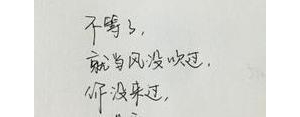 不等了，
就当风没吹过，
你没来过，